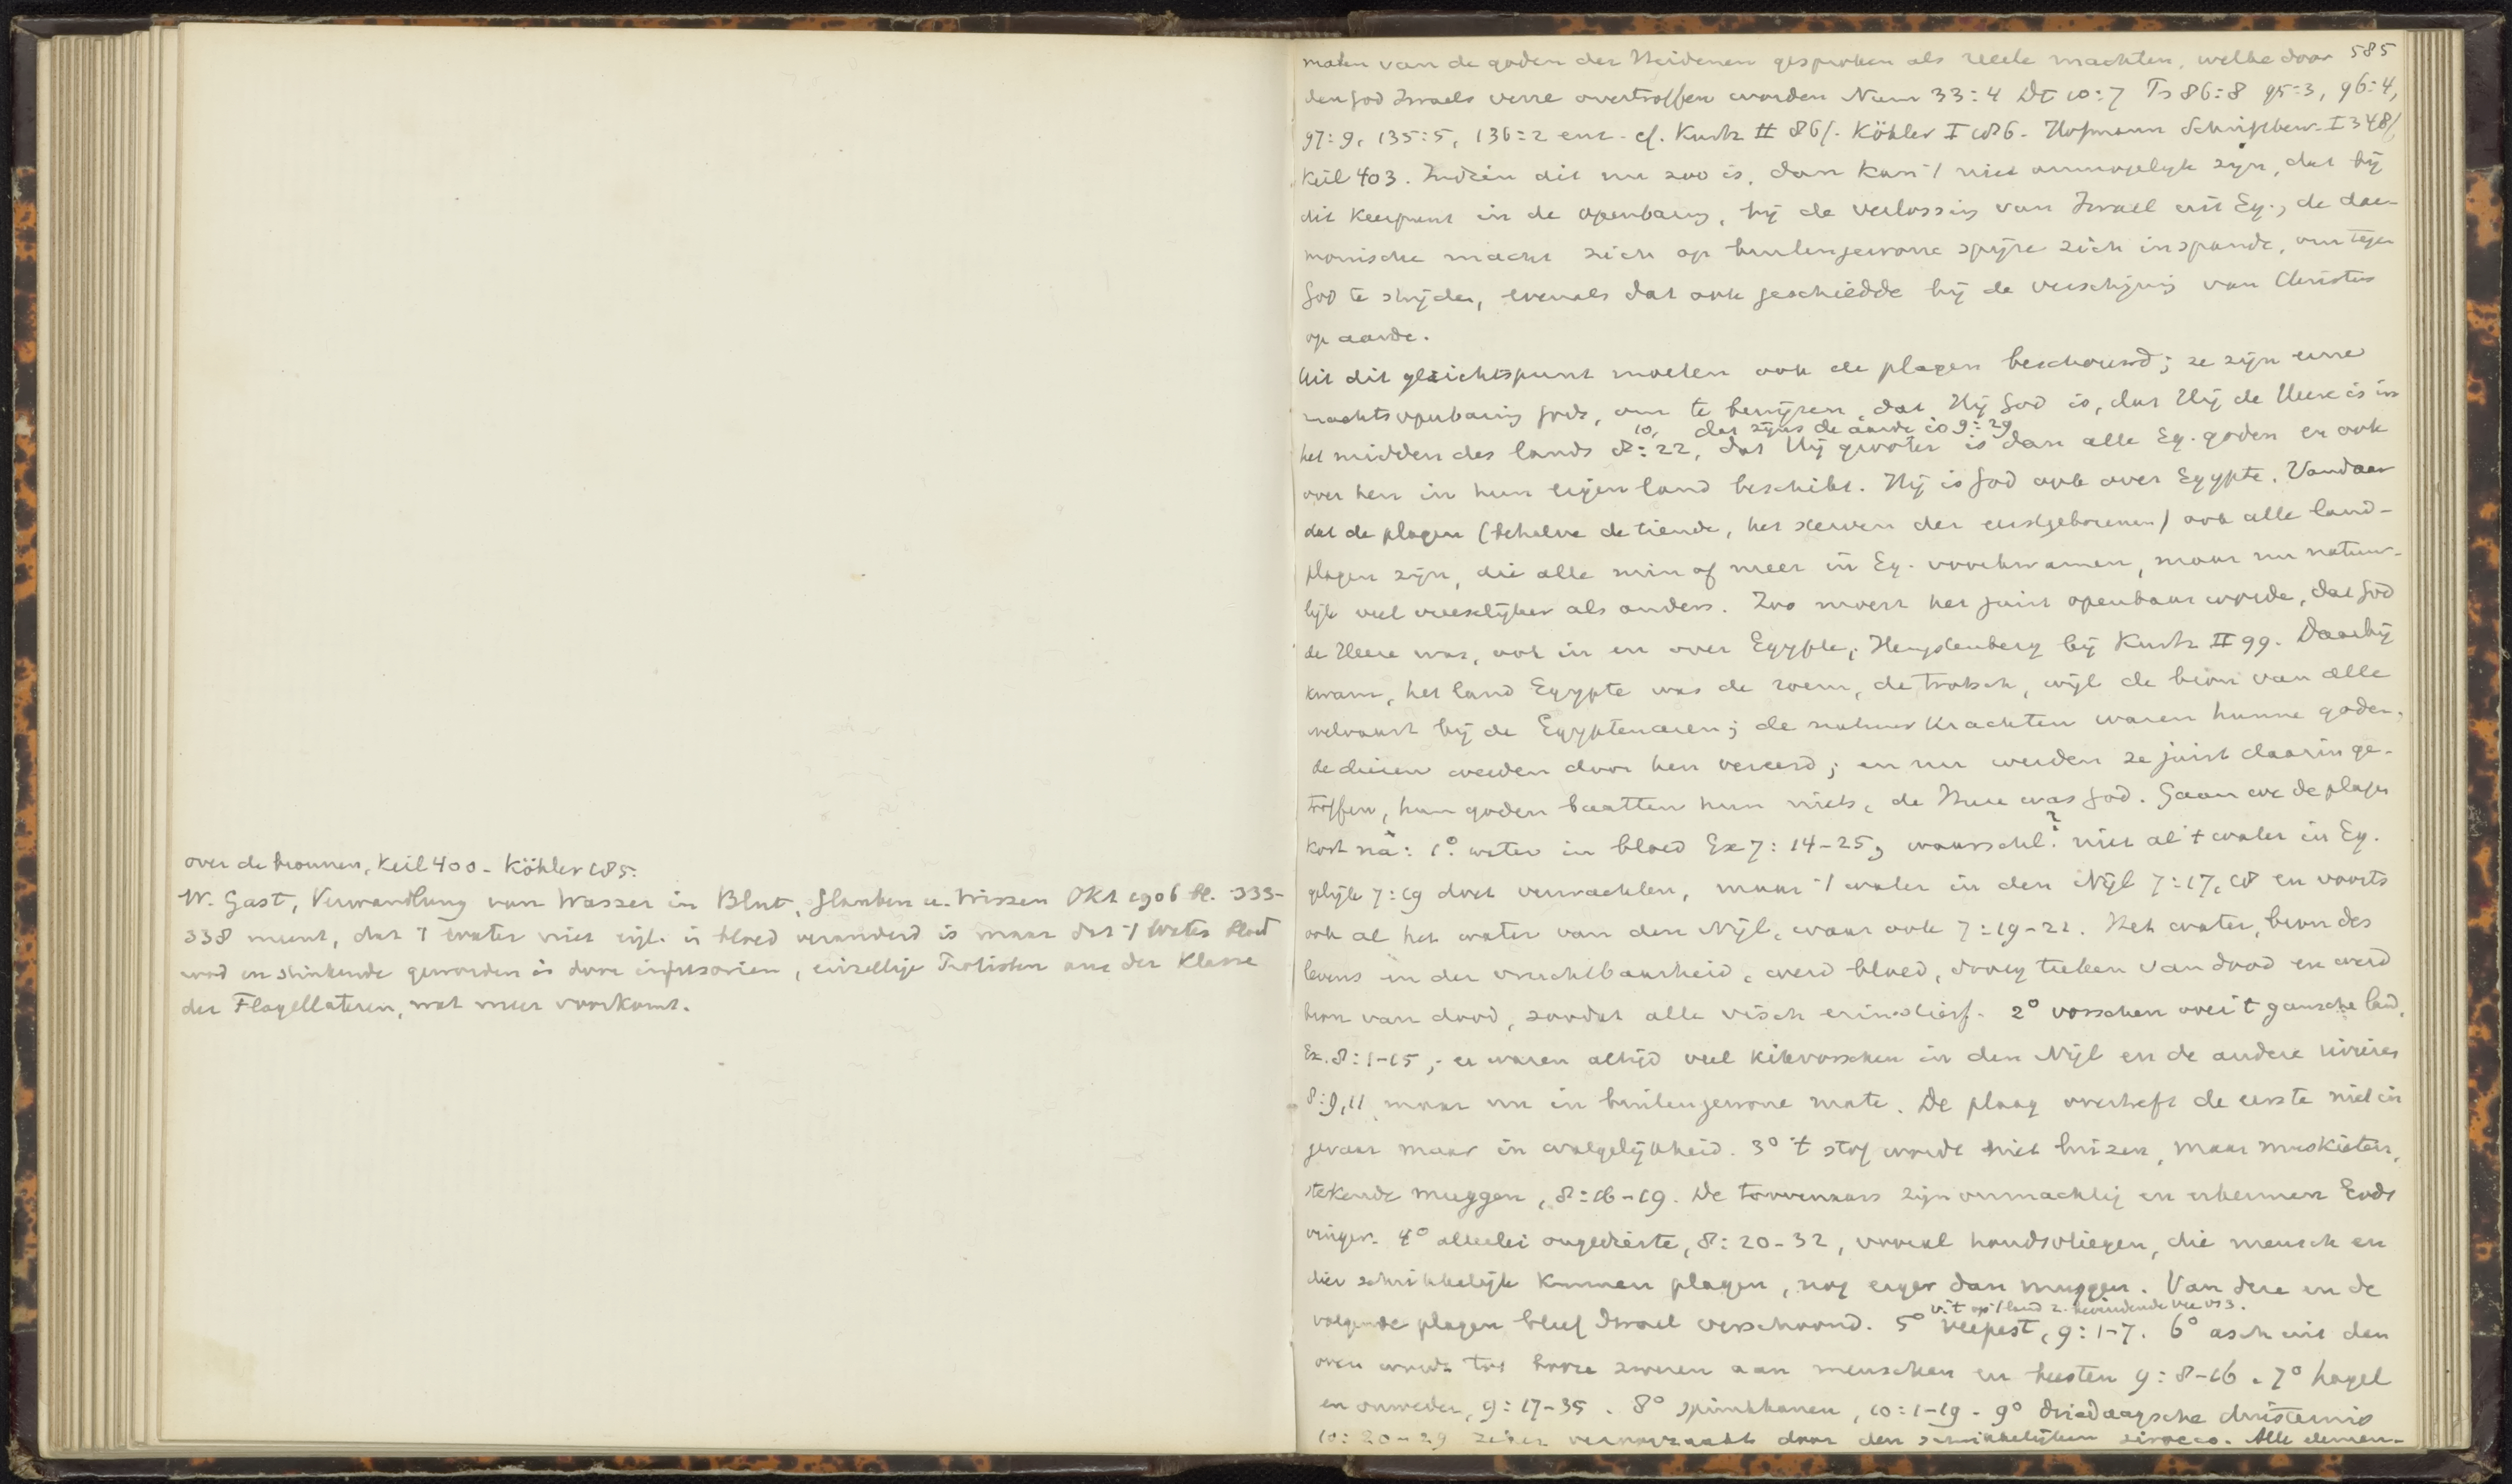 over de bronnen, Keil 400 - Köhler 185.
W. Gast, Verwandlung von Wasser in Blut, Glauben u. Wissen Okt 1906 bl. 333-
338 meent, dat 't water niet eigl. in bloed veranderd is maar dat 't water bloed
rood en stinkende geworden is door infusorien, eincellige Protisten aus der Klasse
der Flagellaten, wat meer voorkomt.
585
malen van de goden der Heidenen gesproken als reële machten, welke door
den God Israels verre overtroffen worden Num 33:4 Dt 10:7 Ps 86:8 95:3, 96:4,
97:9, 135:5, 136:2 enz. cf. Kurtz II 86f. Köhler I 186. Hofmann Schriftbew. I 348f,
Keil 403. Indien dit nu zoo is, dan kan 't niet onmogelijk zijn, dat bij
dit keerpunt in de openbaring, bij de verlossing van Israel uit Eg., de dae-
monische macht zich op buitengewone wijze zich inspande, om tegen
God te strijden, evenals dat ook geschiedde bij de verschijning van Christus
op aarde.
Uit dit gezichtspunt moeten ook de plagen beschouwd; ze zijn eene
machtsopenbaring Gods, om te bewijzen, dat Hij God is, dat Hij de Heere is in
10, dat zijns de aarde is 9:29
het midden des lands 8:22, dat Hij grooter is dan alle Eg. goden en ook
over hen in hun eigen land beschikt. Hij is God ook over Egypte. Vandaar
dat de plagen (behalve de tiende, het sterven der eerstgeborenen) ook alle land-
plagen zijn, die alle min of meer in Eg. voorkwamen, maar nu natuur-
lijk veel vreeselijker als anders. Zoo moest het juist openbaar worden, dat God
de Heere was, ook in en over Egypte; Hengstenberg bij Kurtz II 99. Daarbij
kwam, het land Egypte was de roem, de trotsch, wijl de bron van alle
welvaart bij de Egyptenaren; de natuurkrachten waren hunne goden,
de dieren werden door hen vereerd; en nu werden ze juist daarin ge-
troffen, hun goden baatten hun niets, de Heere was God. Gaan we de plagen
kort na: 1° water in bloed Ex 7:14-25, waarschl.? niet al 't water in Eg.
gelijk 7:19 doet verwachten, maar 't water in den Nijl 7:17, 18 en voorts
ook al het water van den Nijl, waar ook 7:19-21. Het water, bron des
levens in der vruchtbaarheid, werd bloed, teeken van dood en werd
bron van dood, zoodat alle visch erin stierf. 2° vorschen over 't gansche land,
Ex. 8:1-15; er waren altijd veel kikvorschen in den Nijl en de andere rivieren
8:9, 11 maar nu in buitengewone mate. De plaag overtreft de eerste niet in
gevaar maar in walgelijkheid. 3° 't stof wordt niet luizen, maar muskieten,
stekende muggen, 8:16-19. De toovenaars zijn onmachtig en erkennen Gods
vinger. 4° allerlei ongedierte, 8:20-32, vooral hondsvliegen, die mensch en
dier schrikkelijk kunnen plagen, nog erger dan muggen. Van deze en de
v. 't op 't land z. bevindende vee vs 3.
volgende plagen bleef Israel verschoond. 5° veepest, 9:1-7. 6° asch uit den
oven wordt tot booze zweren aan menschen en beesten 9:8-16. 7° hagel
en onweder, 9:17-35. 8° sprinkhanen, 10:1-19. 9° driedaagsche duisternis
10:20-29 zeker veroorzaakt door den schrikkelijken sirocco. Alle elemen-